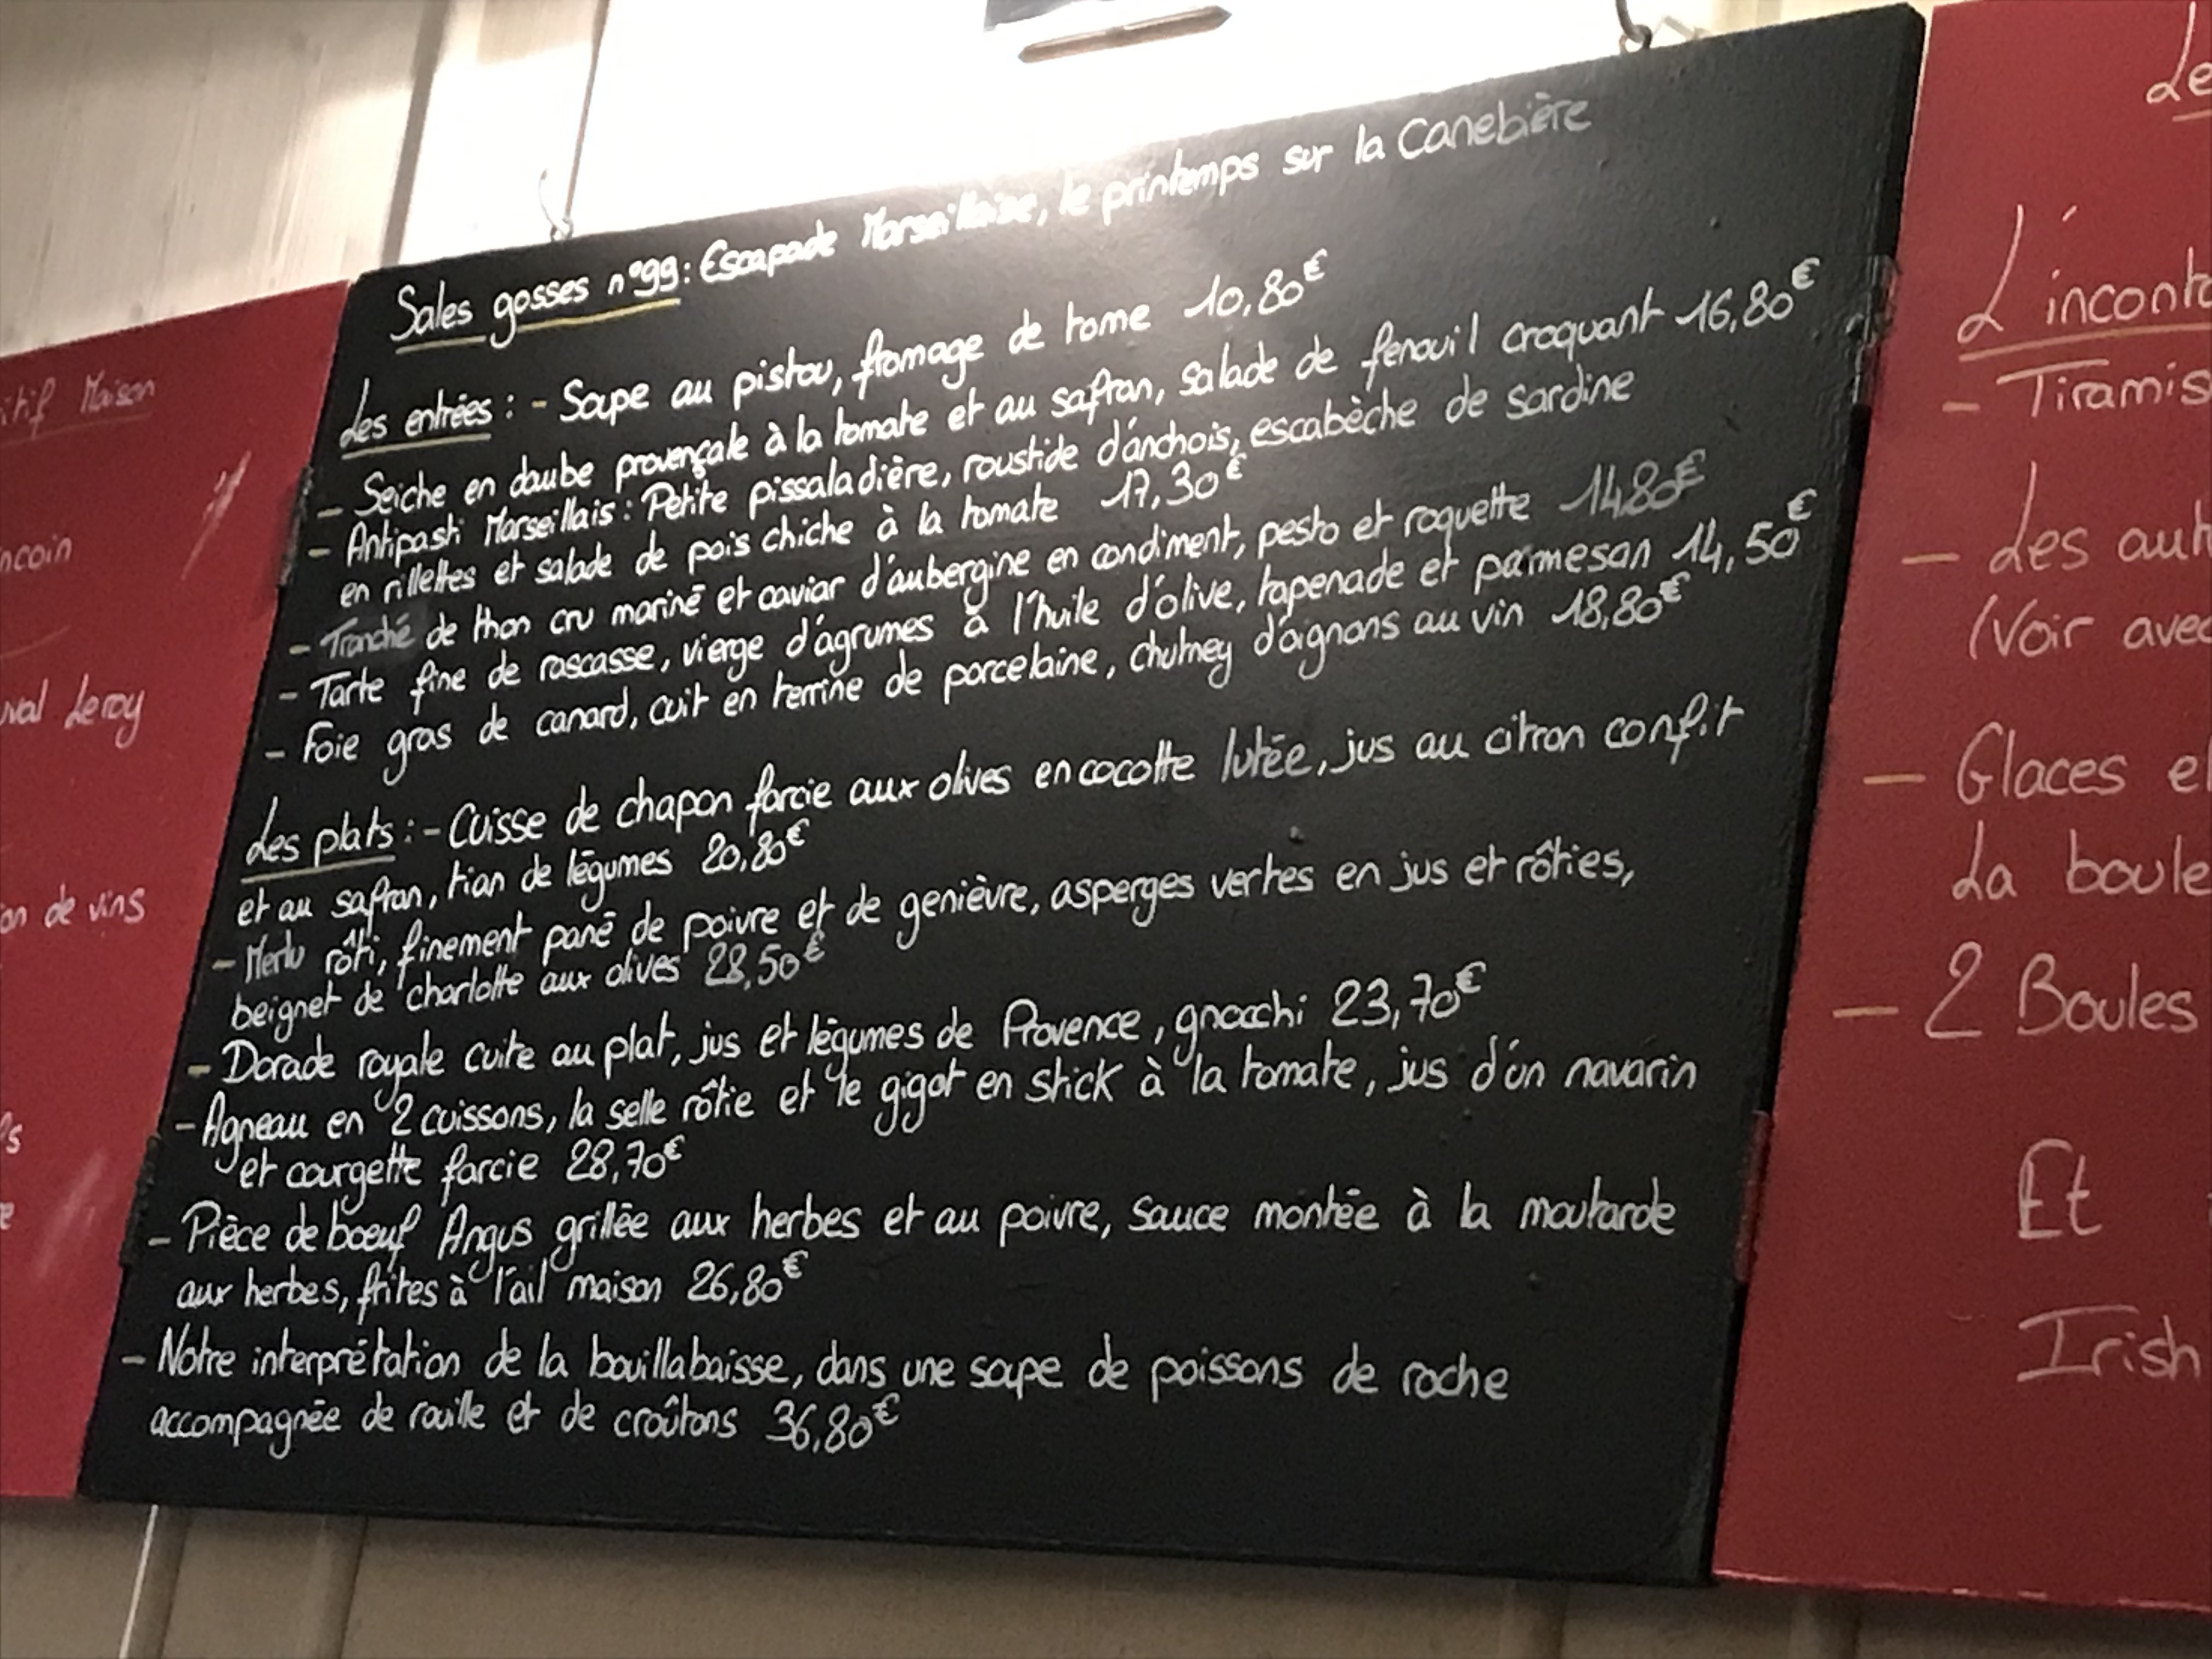 Sales gosses n°99: Escapade Marseillaise, le printemps sur la Canebière
Les entrées : - Soupe au pistou, fromage de tome 10,80€
- Seiche en daube provençale à la tomate et au safran, salade de fenouil croquant 16,80€
- Antipasti Marseillais : Petite pissaladière, roustide d'anchois, escabèche de sardine
en rillettes et salade de pois chiche à la tomate 17,30€
- Tranché de thon cru mariné et caviar d'aubergine en condiment, pesto et roquette 14,80€
- Tarte fine de rascasse, vierge d'agrumes à l'huile d'olive, tapenade et parmesan 14,50€
- Foie gras de canard, cuit en terrine de porcelaine, chutney d'oignons au vin 18,80€
Les plats : - Cuisse de chapon farcie aux olives en cocotte lutée, jus au citron confit
et au safran, tian de légumes 20,80€
- Merlu rôti, finement pané de poivre et de genièvre, asperges vertes en jus et rôties,
beignet de charlotte aux olives 28,50€
- Dorade royale cuite au plat, jus et légumes de Provence, gnocchi 23,70€
- Agneau en 2 cuissons, la selle rôtie et le gigot en stick à la tomate, jus d'un navarin
et courgette farcie 28,70€
- Pièce de boeuf Angus grillée aux herbes et au poivre, sauce montée à la moutarde
aux herbes, frites à l'ail maison 26,80€
- Notre interprétation de la bouillabaisse, dans une soupe de poissons de roche
accompagnée de rouille et de croûtons 36,80€
itif Maison
ncoin
uval Leroy
on de vins
Le
L'incont
- Tiramis
- Les aut
(Voir ave
- Glaces e
La boule
- 2 Boules
Et
Irish